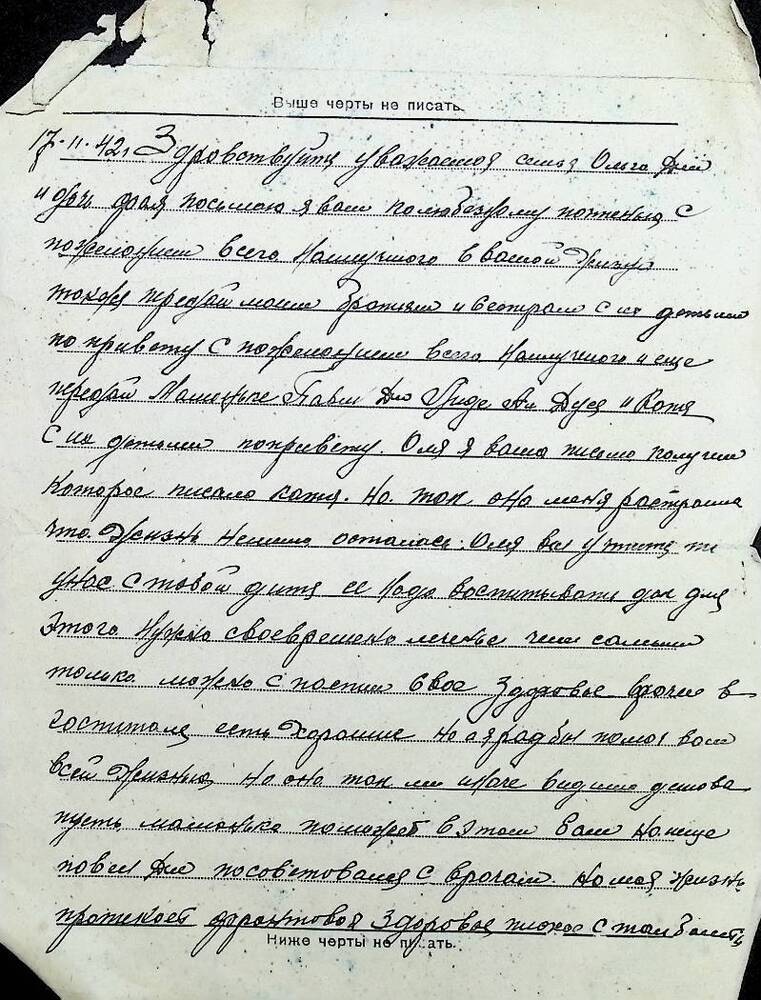 Выше черты не писать.
17.11.42г Здровствуйте уважаемоя семья Ольга Дми
и дочь посылаю я вам по любезному почтенью с
пожеланием всего Наилучшего в вашой жизни
также передай моим братьям и сестрам с их детьми
по привету с пожеланием всего Наилучшего и еще
передай Маменьке Павлу Дм Лиде Ан Дусе и Катя
с их детьми по привету. Оля я ваше письмо получил
которое писала катя. Но так она меня растроила
что жизнь осталась. Оля вы учтите
унас с тобой дитя ее Надо воспитывать для
этого Нужно своевремено леченье чем самым
только можно спасти свое здоровье врачи в
госпитале есть Хорошие Но я рад бы помоч вам
всей жизнью Но она так или иначе видимо дешова
пусть маменька поможет в этом вам
Дм посоветовался с врачам. Но моя жизнь
протекает фронтовоя здоровье плохое стал болеть
Ниже черты не писать.